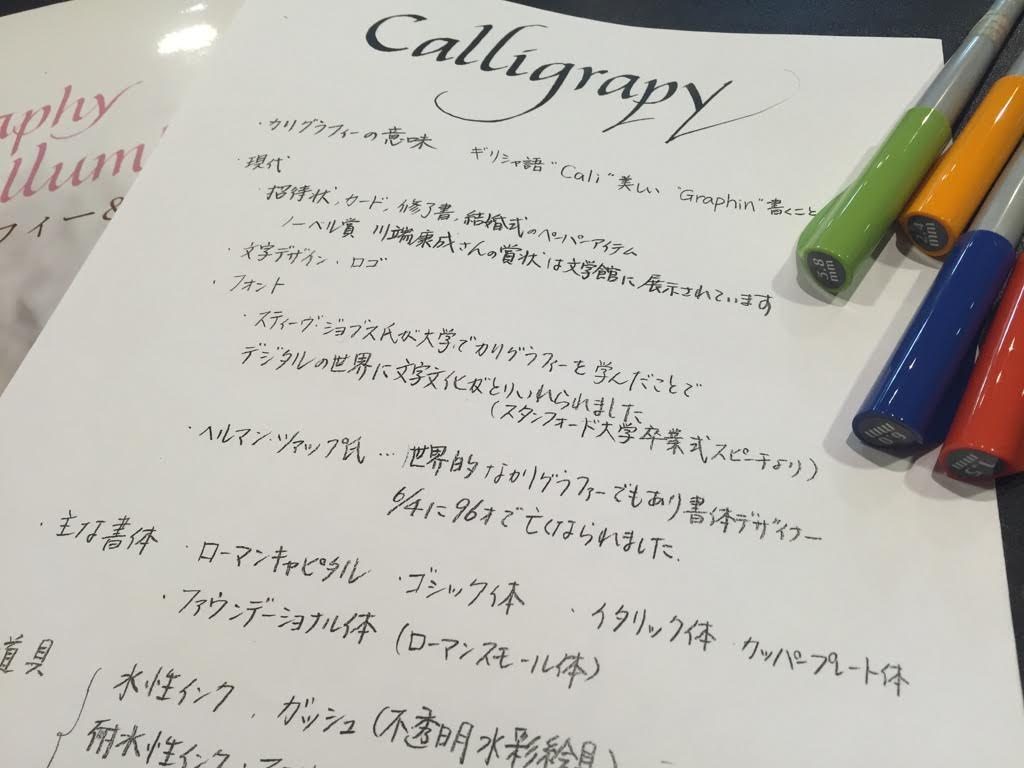 Calligrapy
・カリグラフィーの意味 ギリシャ語"Cali"美しい "Graphin"書くこと
・現代
招待状,カード,修了書,結婚式のペーパーアイテム
ノーベル賞 川端康成さんの賞状は文学館に展示されています
・文字デザイン・ロゴ
・フォント
・スティーヴ・ジョブス氏が大学でカリグラフィーを学んだことで
デジタルの世界に文字文化がとりいれられました
(スタンフォード大学卒業式スピーチより)
・ヘルマン・ツァップ氏…世界的なカリグラファーでもあり書体デザイナー
6/4に96才で亡くなられました.
・主な書体 ・ローマンキャピタル ・ゴシック体 ・イタリック体・カッパープレート体
・ファウンデーショナル体(ローマンスモール体)
道具
水性インク . ガッシュ(不透明水彩絵具)
耐水性インク・
aphy
llum
フィー&
3.8 mm
2.4 mm
6.0 mm
1.5 mm